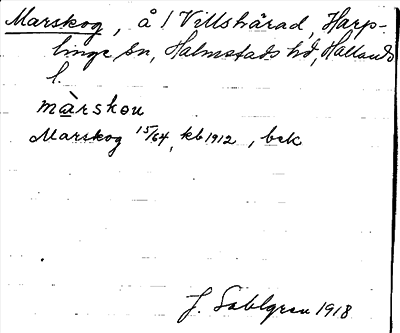 Marskog, å i Villshärad, Harp-
linge sn, Halmstads hd, Hallands
l.
màrskou
Marskog 15/64, kb 1912, bek
J. Sahlgren 1918